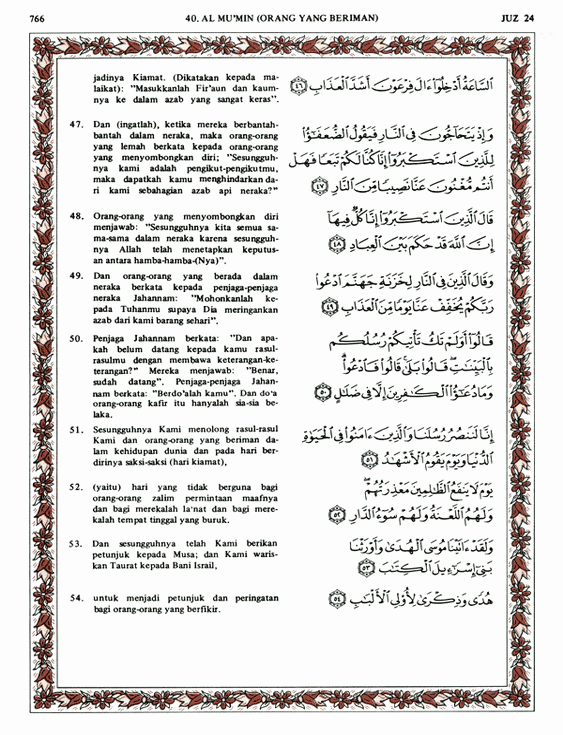 766
40. AL MU'MIN (ORANG YANG BERIMAN)
JUZ 24
jadinya Kiamat. (Dikatakan kepada ma-
laikat): "Masukkanlah Fir'aun dan kaum-
nya ke dalam azab yang sangat keras".
47. Dan (ingatlah), ketika mereka berbantah-
bantah dalam neraka, maka orang-orang
yang lemah berkata kepada orang-orang
yang menyombongkan diri; "Sesungguh-
nya kami adalah pengikut-pengikutmu,
maka dapatkah kamu menghindarkan da-
ri kami sebahagian azab api neraka?"
48. Orang-orang yang menyombongkan diri
menjawab: "Sesungguhnya kita semua sa-
ma-sama dalam neraka karena sesungguh-
nya Allah telah menetapkan keputus-
an antara hamba-hamba-(Nya)".
49. Dan orang-orang yang berada dalam
neraka berkata kepada penjaga-penjaga
neraka Jahannam: "Mohonkanlah ke-
pada Tuhanmu supaya Dia meringankan
azab dari kami barang sehari".
50. Penjaga Jahannam berkata: "Dan apa-
kah belum datang kepada kamu rasul-
rasulmu dengan membawa keterangan-ke-
terangan?" Mereka menjawab: "Benar,
sudah datang". Penjaga-penjaga Jahan-
nam berkata: "Berdo'alah kamu". Dan do'a
orang-orang kafir itu hanyalah sia-sia be-
laka.
51. Sesungguhnya Kami menolong rasul-rasul
Kami dan orang-orang yang beriman da-
lam kehidupan dunia dan pada hari ber-
dirinya saksi-saksi (hari kiamat),
52. (yaitu) hari yang tidak berguna bagi
orang-orang zalim permintaan maafnya
dan bagi merekalah la'nat dan bagi mere-
kalah tempat tinggal yang buruk.
53. Dan sesungguhnya telah Kami berikan
petunjuk kepada Musa; dan Kami waris-
kan Taurat kepada Bani Israil,
54. untuk menjadi petunjuk dan peringatan
bagi orang-orang yang berfikir.
ٱلسَّاعَةُ أَدْخِلُوٓا۟ ءَالَ فِرْعَوْنَ أَشَدَّ ٱلْعَذَابِ ٤٦
وَإِذْ يَتَحَآجُّونَ فِى ٱلنَّارِ فَيَقُولُ ٱلضُّعَفَٰٓؤُا۟
لِلَّذِينَ ٱسْتَكْبَرُوٓا۟ إِنَّا كُنَّا لَكُمْ تَبَعًا فَهَلْ
أَنتُم مُّغْنُونَ عَنَّا نَصِيبًا مِّنَ ٱلنَّارِ ٤٧
قَالَ ٱلَّذِينَ ٱسْتَكْبَرُوٓا۟ إِنَّا كُلٌّ فِيهَآ
إِنَّ ٱللَّهَ قَدْ حَكَمَ بَيْنَ ٱلْعِبَادِ ٤٨
وَقَالَ ٱلَّذِينَ فِى ٱلنَّارِ لِخَزَنَةِ جَهَنَّمَ ٱدْعُوا۟
رَبَّكُمْ يُخَفِّفْ عَنَّا يَوْمًا مِّنَ ٱلْعَذَابِ ٤٩
قَالُوٓا۟ أَوَلَمْ تَكُ تَأْتِيكُمْ رُسُلُكُم
بِٱلْبَيِّنَٰتِ ۖ قَالُوا۟ بَلَىٰ ۚ قَالُوا۟ فَٱدْعُوا۟ ۗ
وَمَا دُعَٰٓؤُا۟ ٱلْكَٰفِرِينَ إِلَّا فِى ضَلَٰلٍ ٥٠
إِنَّا لَنَنصُرُ رُسُلَنَا وَٱلَّذِينَ ءَامَنُوا۟ فِى ٱلْحَيَوٰةِ
ٱلدُّنْيَا وَيَوْمَ يَقُومُ ٱلْأَشْهَٰدُ ٥١
يَوْمَ لَا يَنفَعُ ٱلظَّٰلِمِينَ مَعْذِرَتُهُمْ ۖ
وَلَهُمُ ٱللَّعْنَةُ وَلَهُمْ سُوٓءُ ٱلدَّارِ ٥٢
وَلَقَدْ ءَاتَيْنَا مُوسَى ٱلْهُدَىٰ وَأَوْرَثْنَا
بَنِىٓ إِسْرَٰٓءِيلَ ٱلْكِتَٰبَ ٥٣
هُدًى وَذِكْرَىٰ لِأُو۟لِى ٱلْأَلْبَٰبِ ٥٤